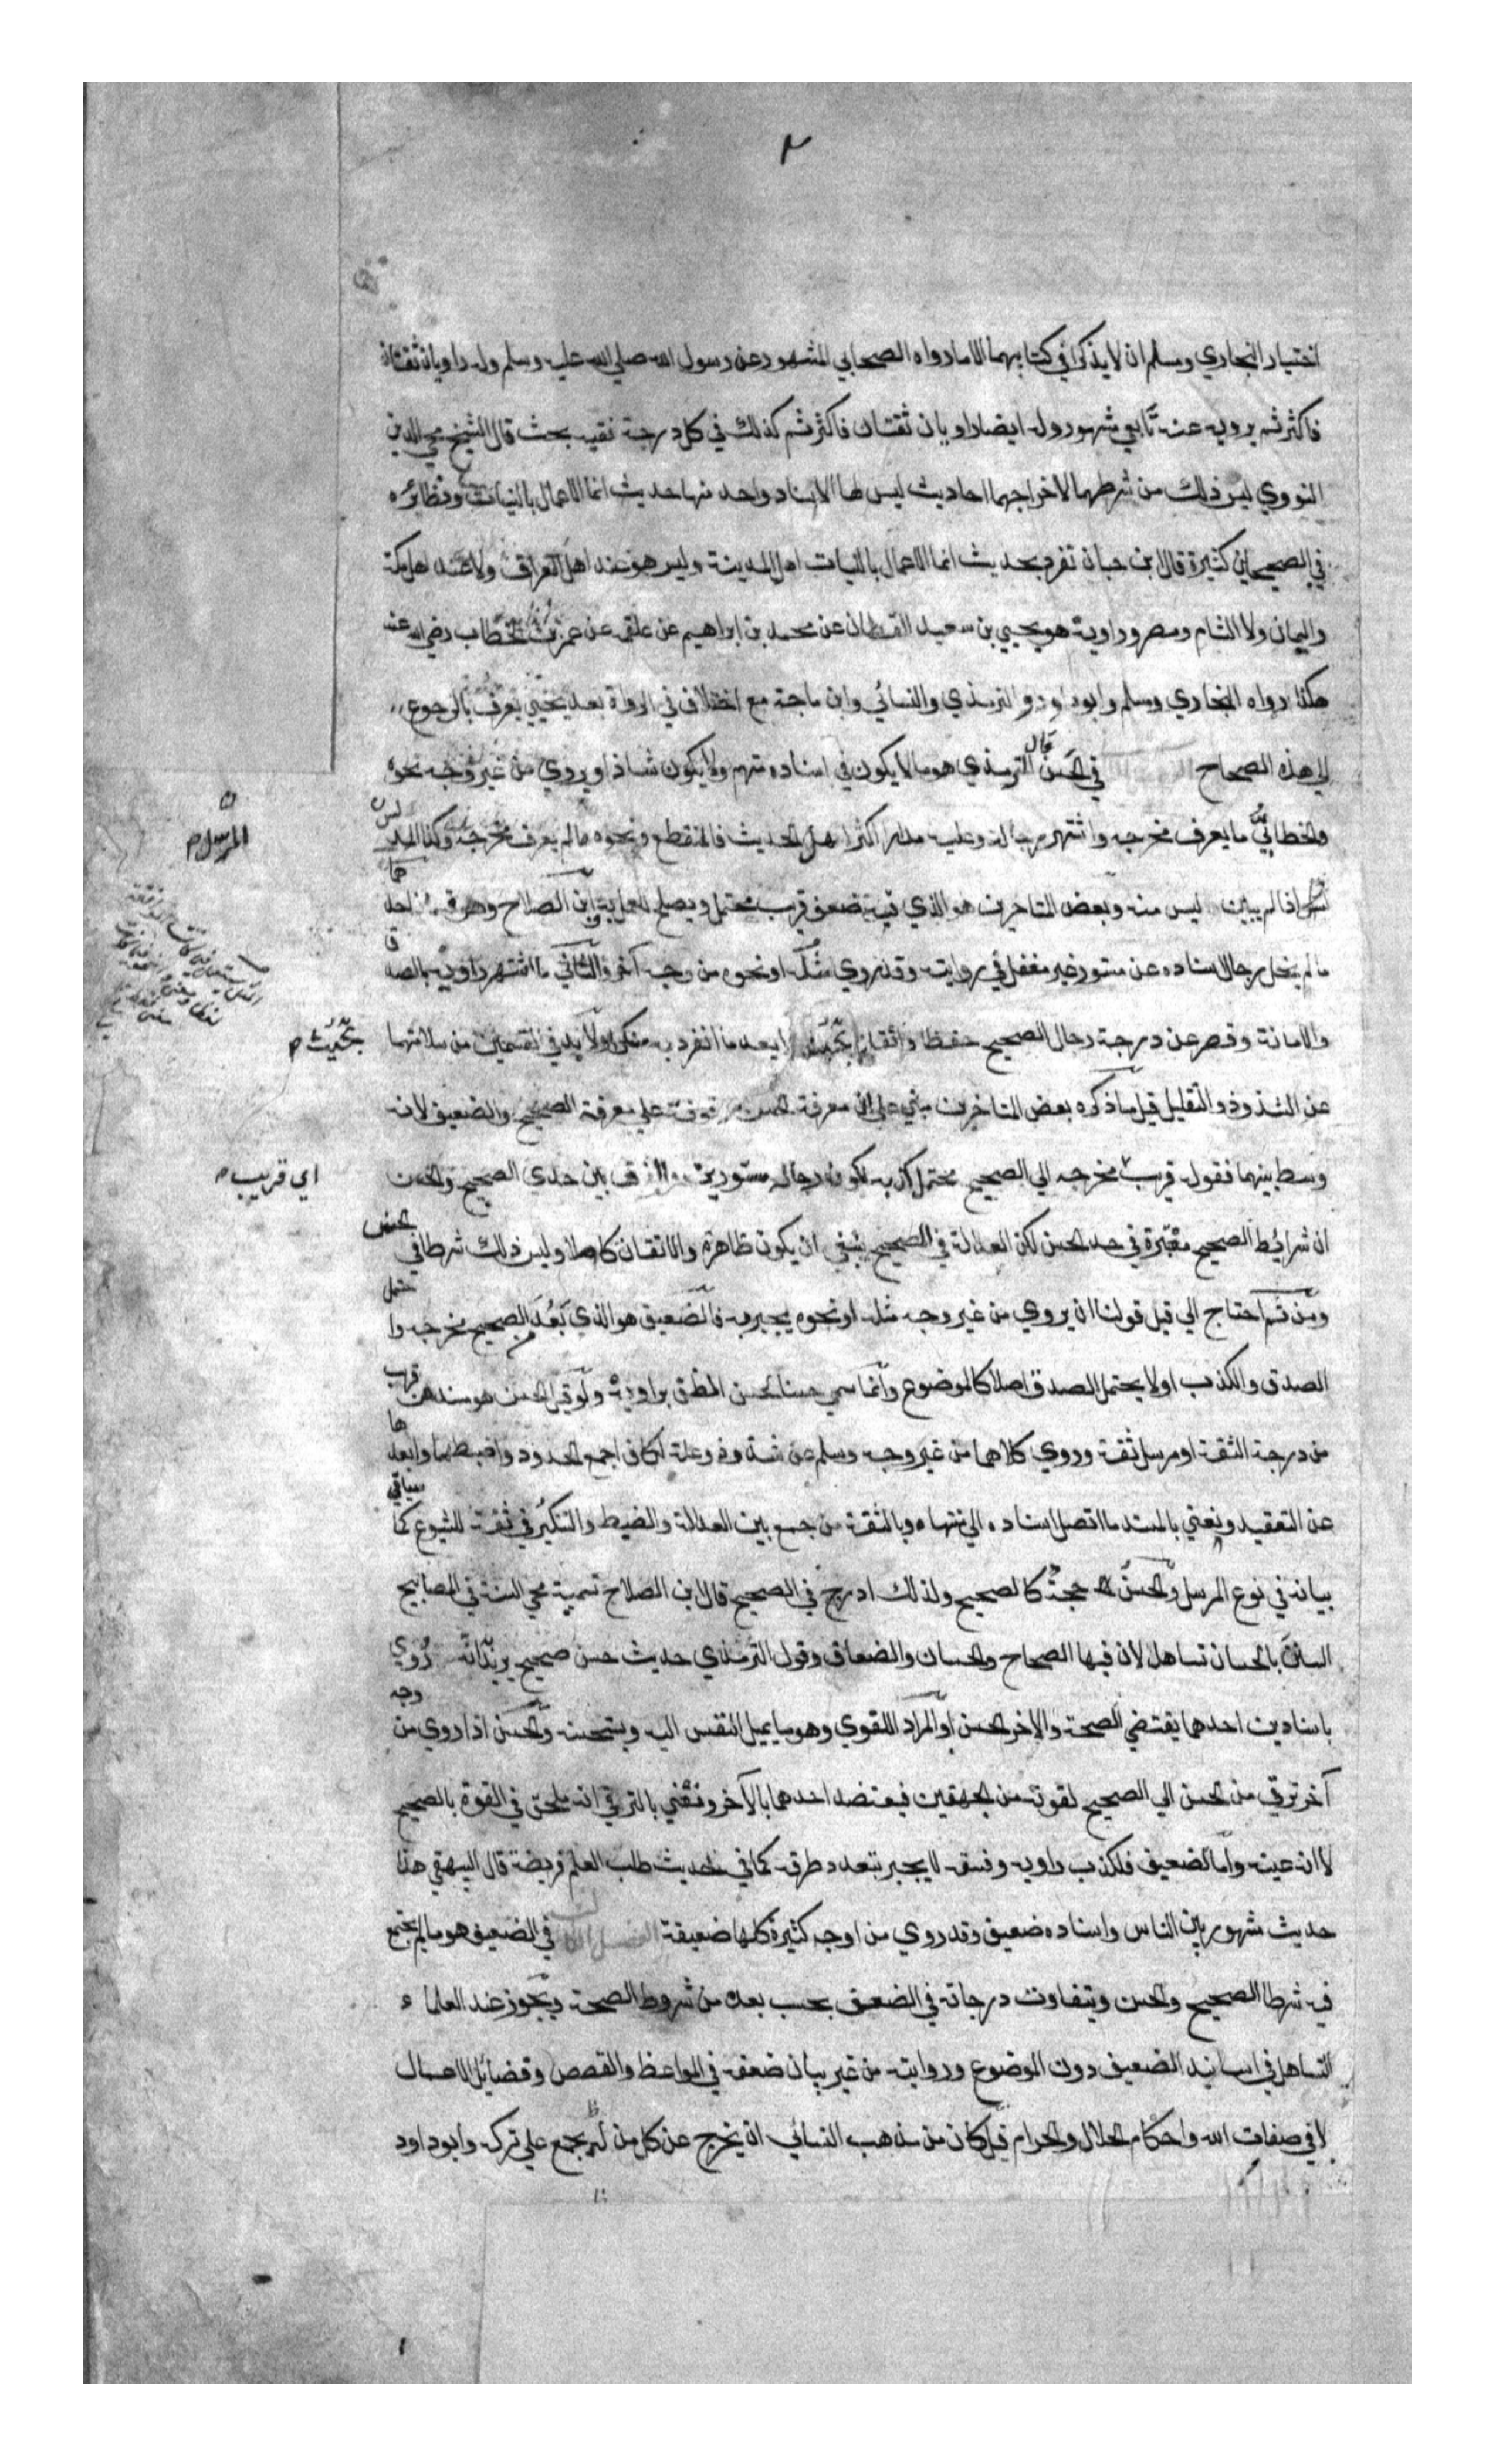 ٢
اختيار البخاري ومسلم ان لا يذكرا في كتابيهما الا ما رواه الصحابي المشهور عن رسول الله صلي الله عليه وسلم وله راويان ثقتان
فاكثر ثم يرويه عنه تابعي مشهور وله ايضا راويان ثقتان فاكثر ثم كذلك في كل درجة نفيه بحث قال الشيخ محيي الدين
النووي ليس ذلك من شرطهما لاخراجهما احاديث ليس لها الا اسناد واحد منها حديث انما الاعمال بالنيات ونظائره
في الصحيحين كثيرة قال ابن حبان تفرد بحديث انما الاعمال بالنيات اهل المدينة وليس هو عند اهل العراق ولا عند اهل مكة
واليمان ولا الشام ومصر وراويه هو يحيي بن سعيد القطان عن محمد بن ابراهيم عن علقمه عن عمر بن الخطاب رضي الله عنه
هكذا رواه البخاري ومسلم وابوداود والترمذي والنسائي وابن ماجة مع اختلاف في الرواة بعد يحيي يعرف بالرجوع
الي هذه الصحاح في الحسن قال الترمذي هو ما لا يكون في اسناده متهم ولا يكون شاذا ويروي من غير وجه نحوه
والخطابي ما يعرف مخرجه واشتهر رجاله وعليه مدار اكثر اهل الحديث فالمنقطع ونحوه مما لم يعرف مخرجه وكذا المدلس
المرسل م
اذا لم يبين ليس منه وبعض المتاخرين هو الذي فيه ضعف قريب محتمل ويصلح للعمل به ابن الصلاح وهو قسمان احدهما
ما لم يخل رجال اسناده عن مستور غير مغفل في روايته وقد روي مثله او نحوه من وجه آخر والثاني ما اشتهر راويه بالصدق
والامانة وقصر عن درجة رجال الصحيح حفظا واتقانا بحيث لا يعد ما انفرد به منكرا ولا بد في القسمين من سلامتهما
بحيث م
عن الشذوذ والتعليل قيل ما ذكره بعض المتاخرين مبني علي ان معرفة الحسن موقوفة علي معرفة الصحيح والضعيف لانه
وسط بينهما فقوله قريب مخرجه الي الصحيح محتمل كذبه لكون رجاله مستورين والفرق بين حدي الصحيح والحسن
اي قريب م
ان شرائط الصحيح معتبرة في حد الحسن لكن العدالة في الصحيح ينبغي ان يكون ظاهرة والاتقان كاملا وليس ذلك شرطا في الحسن
ومن ثم احتاج الي قيل قولنا ان يروي من غير وجه مثله او نحوه يجبر به فالضعيف هو الذي بعد الصحيح مخرجه واحتمل
الصدق والكذب او لا يحتمل الصدق اصلا كالموضوع وانما سمي حسنا لحسن الظن براويه ولو قيل الحسن هو مسند من قرب
من درجة الثقة او مرسل ثقة وروي كلاهما من غير وجه وسلم عن شذوذ وعلة لكان اجمع الحدود واضبطها وابعدها
عن التعقيد ونعني بالمسند ما اتصل اسناده الي منتهاه وبالثقة من جمع بين العدالة والضبط والتنكير في ثقة للشيوع كما سياتي
بيانه في نوع المرسل والحسن حجة كالصحيح ولذلك ادرج في الصحيح قال ابن الصلاح تسمية محي السنة في المصابيح
السنن بالحسان تساهل لان فيها الصحاح والحسان والضعاف وقول الترمذي حديث حسن صحيح يريد انه روي
باسنادين احدهما يقتضي الصحة والاخر الحسن او المراد اللغوي وهو ما يميل النفس اليه ويستحسنه والحسن اذا روي من وجه
آخر ترقي من الحسن الي الصحيح لقوته من الجهتين فيعتضد احدهما بالآخر ونعني بالترقي انه ملحق في القوة بالصحيح
لا انه عينه واما الضعيف فلكذب راويه وفسقه لا يجبر بتعدد طرقه كما في حديث طلب العلم فريضة قال البيهقي هذا
حديث مشهور بين الناس واسناده ضعيف وقد روي من اوجه كثيرة كلها ضعيفة في الضعيف هو ما لم يجتمع
فيه شرطا الصحيح والحسن ويتفاوت درجاته في الضعف بحسب بعده من شروط الصحة ويجوز عند العلماء
التساهل في اسانيد الضعيف دون الموضوع وروايته من غير بيان ضعفه في المواعظ والقصص وفضائل الاعمال
لا في صفات الله واحكام الحلال والحرام قيل كان من مذهب النسائي ان يخرج عن كل من لم يجمع علي تركه وابو داود